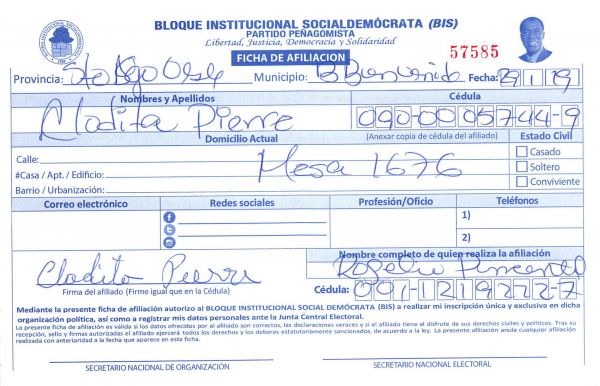 BLOQUE INSTITUCIONAL SOCIALDEMÓCRATA (BIS)
PARTIDO PEÑAGOMISTA
Libertad, Justicia, Democracia y Solidaridad
57585
FICHA DE AFILIACION
Provincia: Sto Dgo Oeste Municipio: Bienvenido Fecha: 29 1 19
Nombres y Apellidos Cédula
Cladita Pierre 090-0005744-9
Domicilio Actual (Anexar copia de cédula del afiliado) Estado Civil
Calle: Casado
#Casa / Apt. / Edificio: Mesa 1676 Soltero
Barrio / Urbanización: Conviviente
Correo electrónico Redes sociales Profesión/Oficio Teléfonos
1)
2)
Nombre completo de quien realiza la afiliación
Cladito Pierre Rogelio Pimentel
Firma del afiliado (Firme igual que en la Cédula) Cédula: 001-1219222-7
Mediante la presente ficha de afiliación autorizo al BLOQUE INSTITUCIONAL SOCIAL DEMÓCRATA (BIS) a realizar mi inscripción única y exclusiva en dicha
organización política, así como a registrar mis datos personales ante la Junta Central Electoral.
La presente ficha de afiliación es válida si los datos ofrecidos por el afiliado son correctos, las declaraciones veraces y si el afiliado tiene el disfrute de sus derechos civiles y políticos. Tras su
recepción, sello y firmas autorizadas el afiliado ejercerá todos los derechos y los deberes estatutariamente sancionados, de acuerdo a la ley. La presente afiliación anula cualquier afiliación
realizada con anterioridad a la fecha que aparece en esta ficha.
SECRETARIO NACIONAL DE ORGANIZACIÓN SECRETARIO NACIONAL ELECTORAL